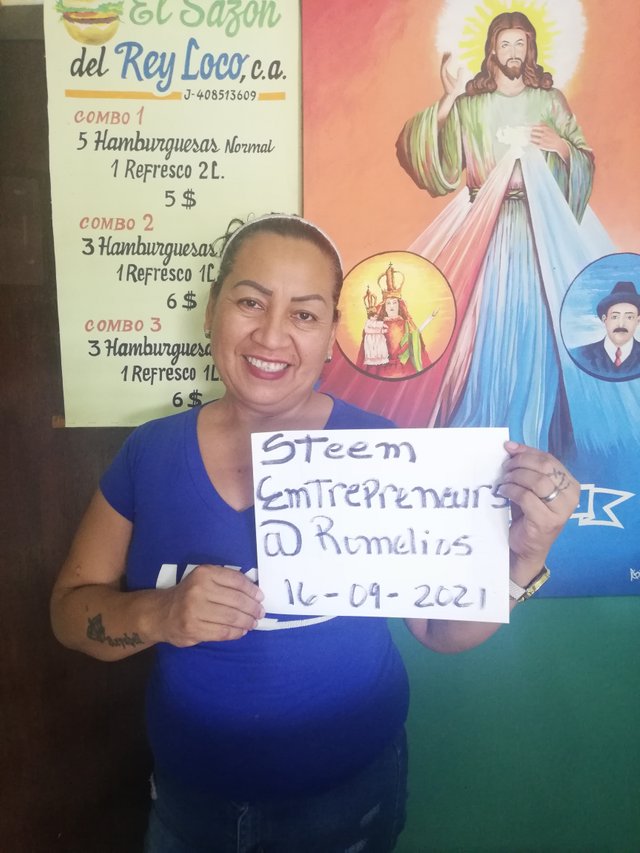 El Sazón
del Rey Loco, c.a.
J-408513609
COMBO 1
5 Hamburguesas Normal
1 Refresco 2L.
5 $
COMBO 2
3 Hamburguesas
1 Refresco 1L
6 $
COMBO 3
3 Hamburguesa
1 Refresco 1L
6 $
STeem
EmTrePreneurs
@Romelins
16-09-2021